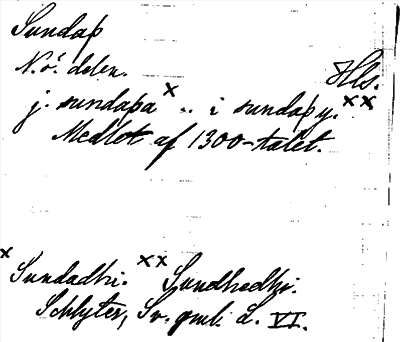 Sundaþ
N.ö. delen. Hls.
j. sundaþa x .. i sundaþy. xx
Medlet af 1300-talet.
x Sundadhi. xx Sundhedhi.
Schlyter, Sv. gml. L. VI.